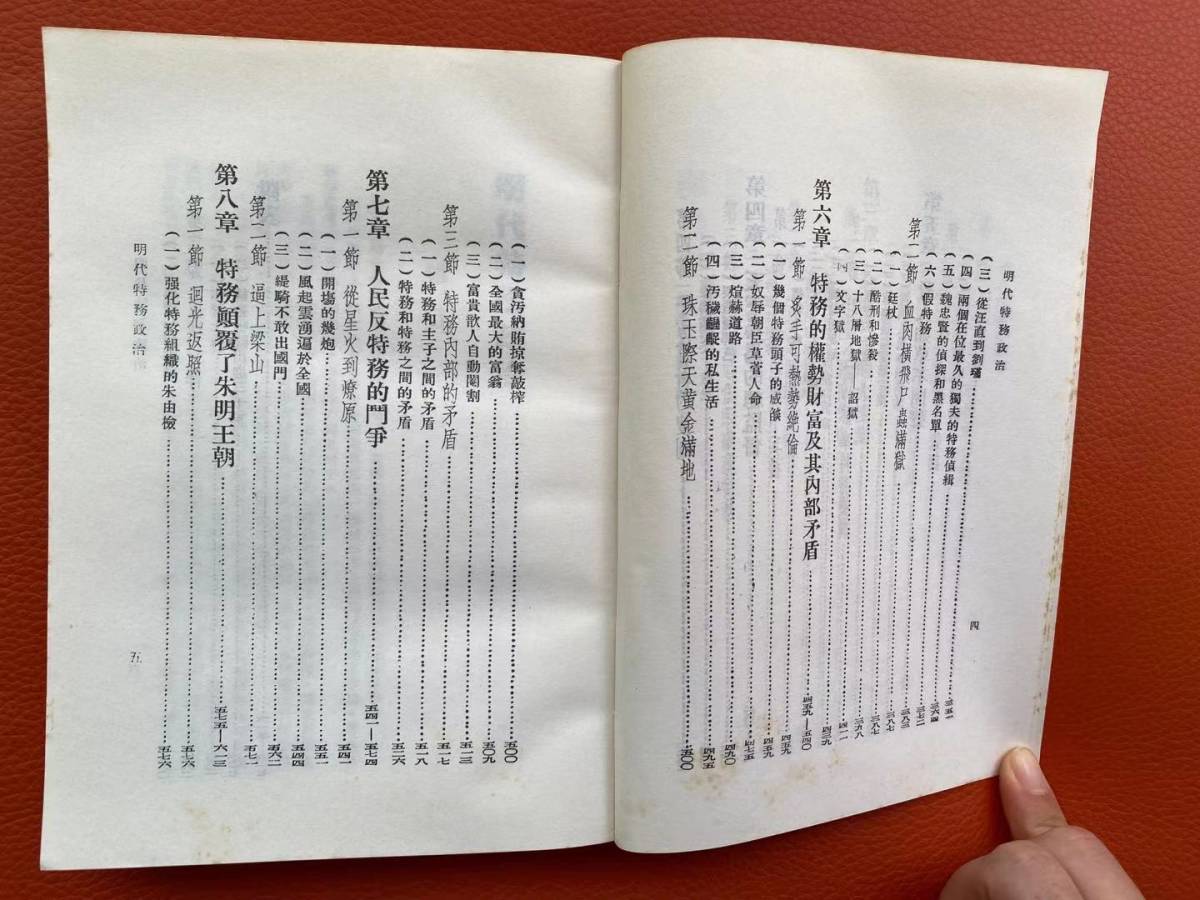 明代特務政治 四
(三)從汪直到劉瑾……三五一
(四)兩個在位最久的獨夫的特務偵緝……三六四
(五)魏忠賢的偵探和黑名單……三七二
(六)假特務……三八三
第二節 血肉橫飛尸蟲滿獄……三八七
(一)廷杖……三八七
(二)酷刑和慘殺……三九八
(三)十八層地獄——詔獄……四一一
(四)文字獄……四二九
第六章 特務的權勢財富及其內部矛盾……四五九—五四〇
第一節 炙手可熱勢絶倫……四五九
(一)幾個特務頭子的威燄……四五九
(二)奴辱朝臣草菅人命……四七五
(三)煊赫道路……四九〇
(四)汚穢齷齪的私生活……四九五
第二節 珠玉際天黄金滿地……五〇〇
(一)貪汚納賄掠奪敲榨……五〇〇
(二)全國最大的富翁……五〇九
(三)富貴散人自動閹割……五一三
第三節 特務內部的矛盾……五一七
(一)特務和主子之間的矛盾……五一八
(二)特務和特務之間的矛盾……五二六
第七章 人民反特務的鬥爭……五四一—五七四
第一節 從星火到燎原……五四一
(一)開塲的幾炮……五四一
(二)風起雲湧遍於全國……五四四
(三)緹騎不敢出國門……五六二
第二節 逼上梁山……五七一
第八章 特務顚覆了朱明王朝……五七五—六一三
第一節 迴光返照……五七六
(一)强化特務組織的朱由檢……五七六
明代特務政治 五